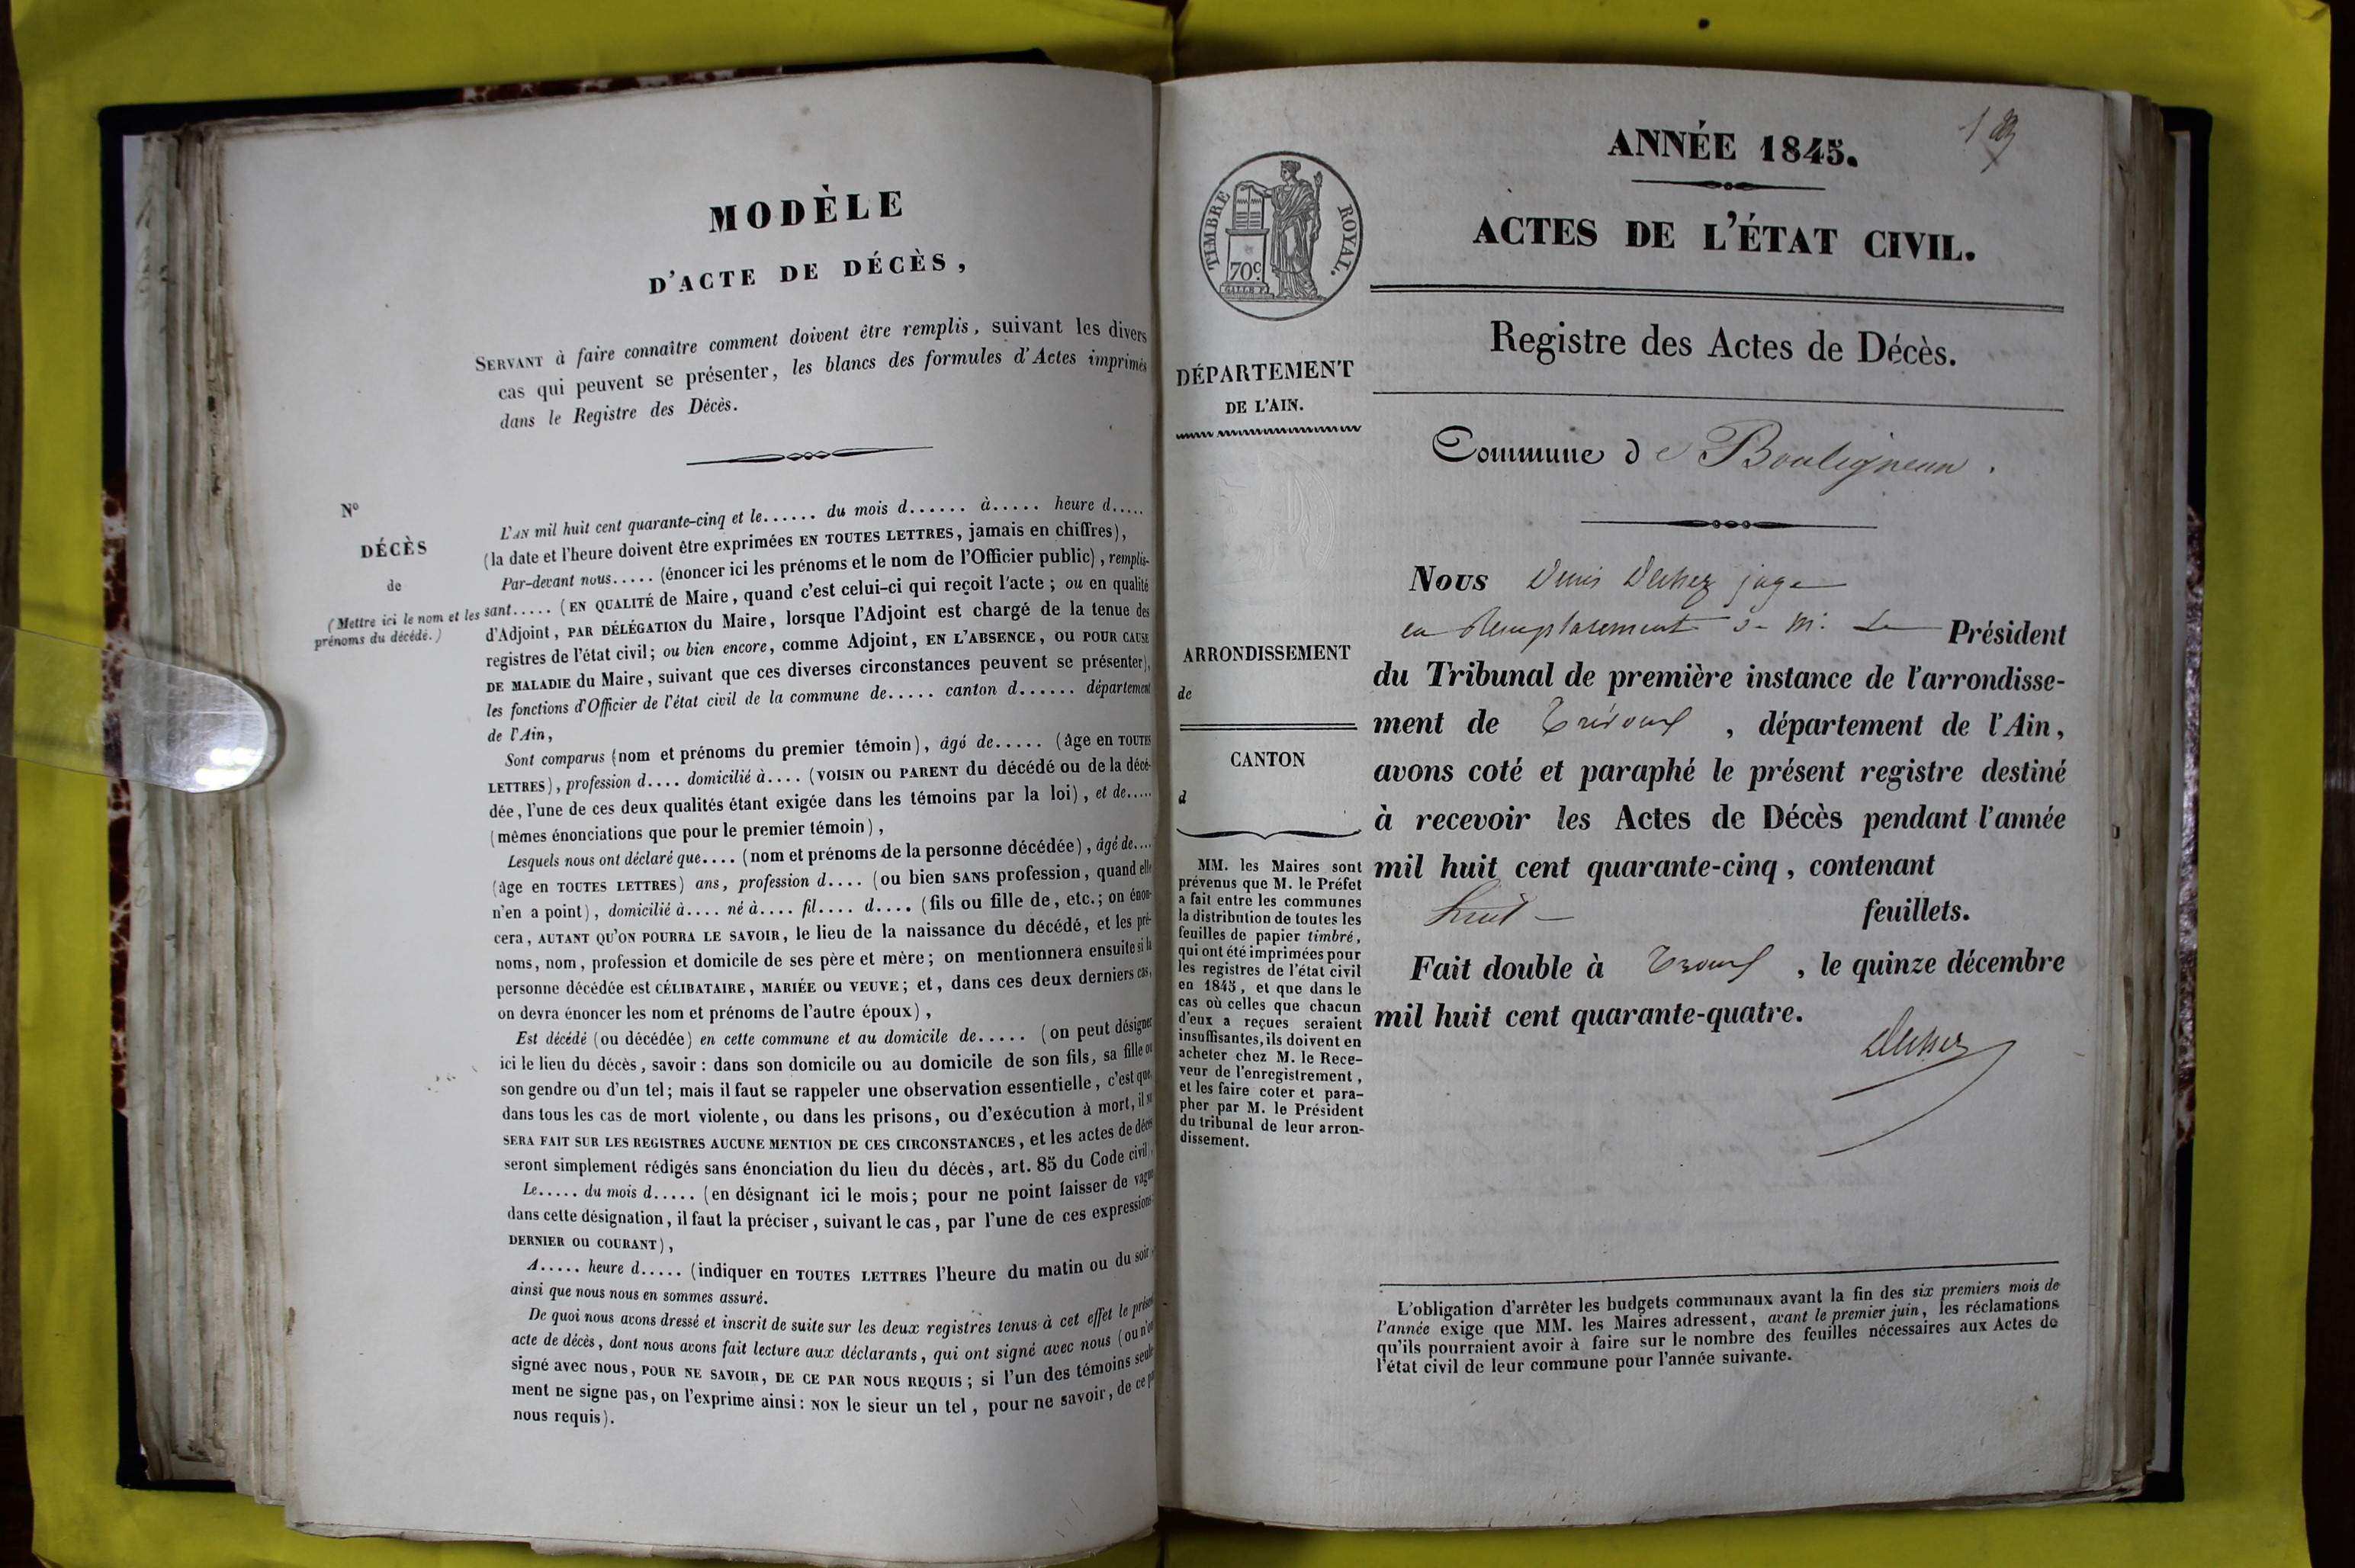 MODÈLE
D'ACTE DE DÉCÈS,
SERVANT à faire connaître comment doivent être remplis, suivant les divers
cas qui peuvent se présenter, les blancs des formules d'Actes imprimés
dans le Registre des Décès.
N°
DÉCÈS
de
(Mettre ici le nom et les
prénoms du décédé.)
L'AN mil huit cent quarante-cinq et le...... du mois d...... à..... heure d.....
(la date et l'heure doivent être exprimées EN TOUTES LETTRES, jamais en chiffres),
Par-devant nous..... (énoncer ici les prénoms et le nom de l'Officier public), remplis-
sant..... (EN QUALITÉ de Maire, quand c'est celui-ci qui reçoit l'acte; ou en qualité
d'Adjoint, PAR DÉLÉGATION du Maire, lorsque l'Adjoint est chargé de la tenue des
registres de l'état civil; ou bien encore, comme Adjoint, EN L'ABSENCE, OU POUR CAUSE
DE MALADIE du Maire, suivant que ces diverses circonstances peuvent se présenter),
les fonctions d'Officier de l'état civil de la commune de..... canton d...... département
de l'Ain,
Sont comparus (nom et prénoms du premier témoin), âgé de..... (âge en TOUTES
LETTRES), profession d.... domicilié à.... (VOISIN OU PARENT du décédé ou de la décé-
dée, l'une de ces deux qualités étant exigée dans les témoins par la loi), et de.....
(mêmes énonciations que pour le premier témoin),
Lesquels nous ont déclaré que.... (nom et prénoms de la personne décédée), âgé de....
(âge en TOUTES LETTRES) ans, profession d.... (ou bien SANS profession, quand elle
n'en a point), domicilié à.... né à.... fil.... d.... (fils ou fille de, etc.; on énon-
cera, AUTANT QU'ON POURRA LE SAVOIR, le lieu de la naissance du décédé, et les pré-
noms, nom, profession et domicile de ses père et mère; on mentionnera ensuite si la
personne décédée est CÉLIBATAIRE, MARIÉE OU VEUVE; et, dans ces deux derniers cas,
on devra énoncer les nom et prénoms de l'autre époux),
Est décédé (ou décédée) en cette commune et au domicile de..... (on peut désigner
ici le lieu du décès, savoir: dans son domicile ou au domicile de son fils, sa fille ou
son gendre ou d'un tel; mais il faut se rappeler une observation essentielle, c'est que,
dans tous les cas de mort violente, ou dans les prisons, ou d'exécution à mort, il ne
SERA FAIT SUR LES REGISTRES AUCUNE MENTION DE CES CIRCONSTANCES, et les actes de décès
seront simplement rédigés sans énonciation du lieu du décès, art. 85 du Code civil),
Le..... du mois d..... (en désignant ici le mois; pour ne point laisser de vague
dans cette désignation, il faut la préciser, suivant le cas, par l'une de ces expressions:
DERNIER OU COURANT),
A..... heure d..... (indiquer en TOUTES LETTRES l'heure du matin ou du soir),
ainsi que nous nous en sommes assuré.
De quoi nous avons dressé et inscrit de suite sur les deux registres tenus à cet effet le présent
acte de décès, dont nous avons fait lecture aux déclarants, qui ont signé avec nous (ou n'ont
signé avec nous, POUR NE SAVOIR, DE CE PAR NOUS REQUIS; si l'un des témoins seule-
ment ne signe pas, on l'exprime ainsi: NON le sieur un tel, pour ne savoir, de ce par
nous requis).
ANNÉE 1845.
ACTES DE L'ÉTAT CIVIL.
TIMBRE ROYAL.
70 c.
Registre des Actes de Décès.
DÉPARTEMENT
DE L'AIN.
Commune de Bouligneux.
ARRONDISSEMENT
de
CANTON
d
MM. les Maires sont
prévenus que M. le Préfet
a fait entre les communes
la distribution de toutes les
feuilles de papier timbré,
qui ont été imprimées pour
les registres de l'état civil
en 1845, et que dans le
cas où celles que chacun
d'eux a reçues seraient
insuffisantes, ils doivent en
acheter chez M. le Rece-
veur de l'enregistrement,
et les faire coter et para-
pher par M. le Président
du tribunal de leur arron-
dissement.
Nous Denis juge
en Remplacement de M. Le Président
du Tribunal de première instance de l'arrondisse-
ment de Trévoux, département de l'Ain,
avons coté et paraphé le présent registre destiné
à recevoir les Actes de Décès pendant l'année
mil huit cent quarante-cinq, contenant
huit feuillets.
Fait double à Trévoux, le quinze décembre
mil huit cent quarante-quatre.
L'obligation d'arrêter les budgets communaux avant la fin des six premiers mois de
l'année exige que MM. les Maires adressent, avant le premier juin, les réclamations
qu'ils pourraient avoir à faire sur le nombre des feuilles nécessaires aux Actes de
l'état civil de leur commune pour l'année suivante.